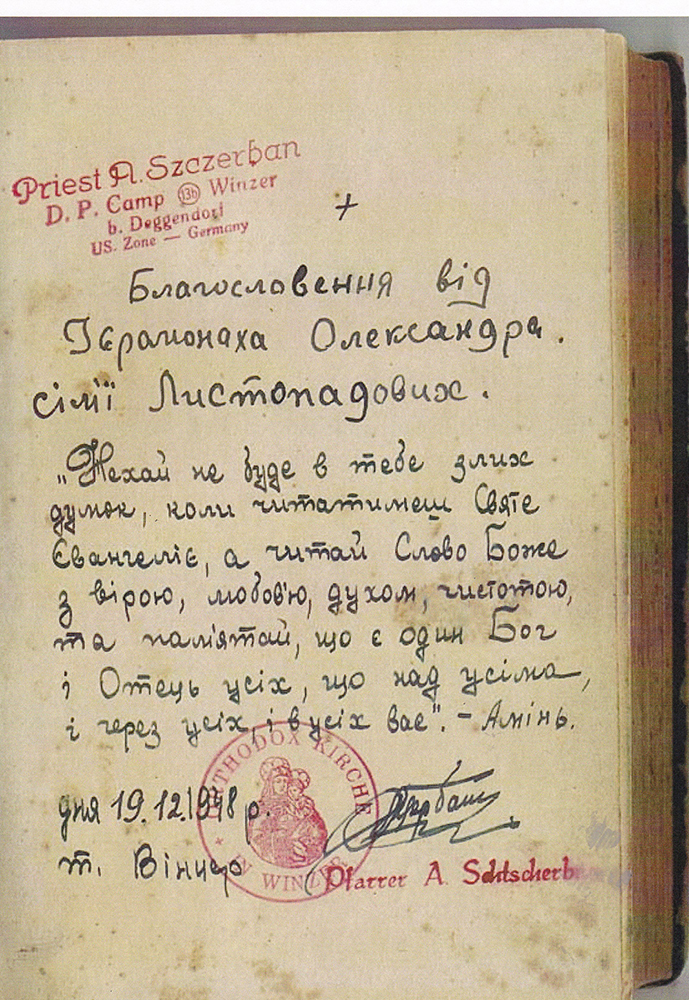 Priest A. Szczerban
D. P. Camp 13b Winzer
b. Deggendorf
US. Zone — Germany
+
Благословення від
Ієромонаха Олександра.
сім'ї Листопадових.
„Нехай не буде в тебе злих
думок, коли читатимеш Святе
Євангеліє, а читай Слово Боже
з вірою, любов'ю, духом, чистотою,
та пам'ятай, що є один Бог
і Отець усіх, що над усіма,
і через усіх, і в усіх вас". – Амінь.
ORTHODOX KIRCHE
IN WINZER
дня 19.12.1948 р.
т. Вінцер
Pfarrer A. Schtscherb